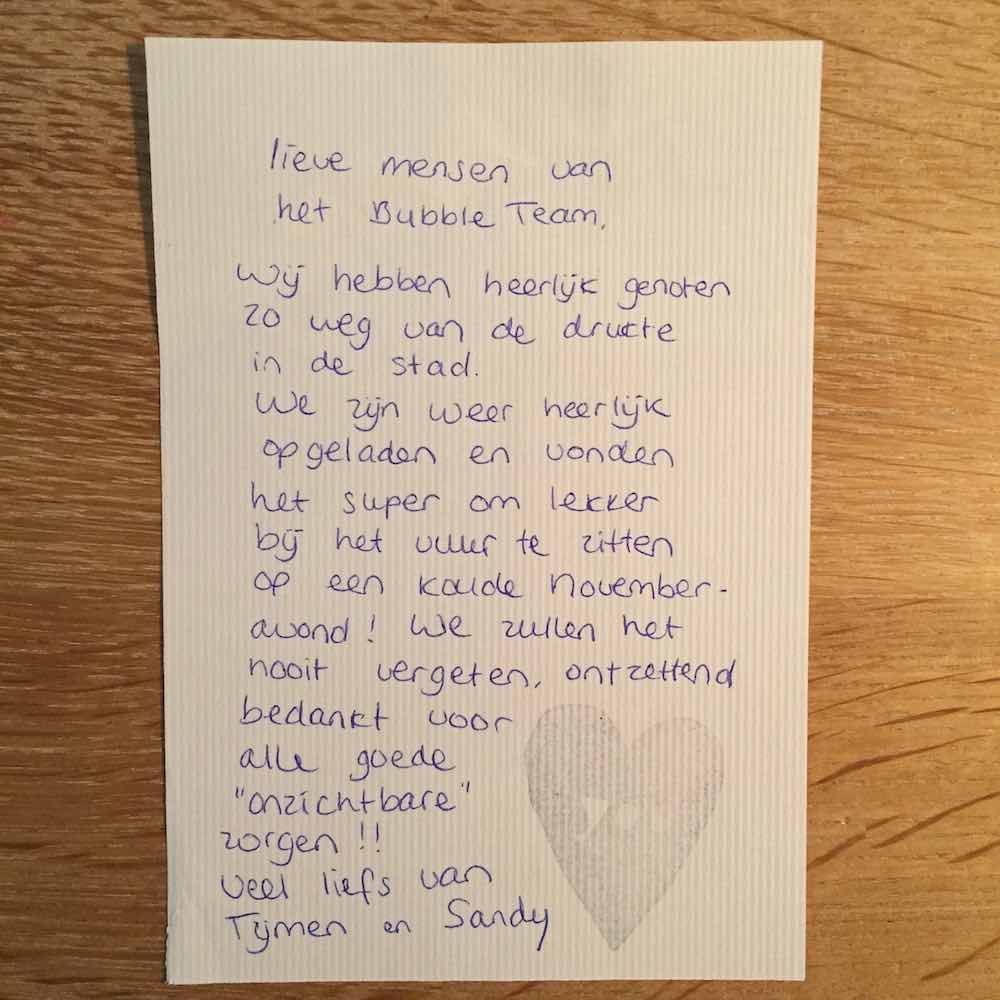 lieve mensen van
het Bubble Team,
Wij hebben heerlijk genoten
zo weg van de drukte
in de stad.
We zijn weer heerlijk
opgeladen en vonden
het super om lekker
bij het vuur te zitten
op een koude November-
avond! We zullen het
nooit vergeten, ontzettend
bedankt voor
alle goede
"onzichtbare"
zorgen!!
veel liefs van
Tijmen en Sandy